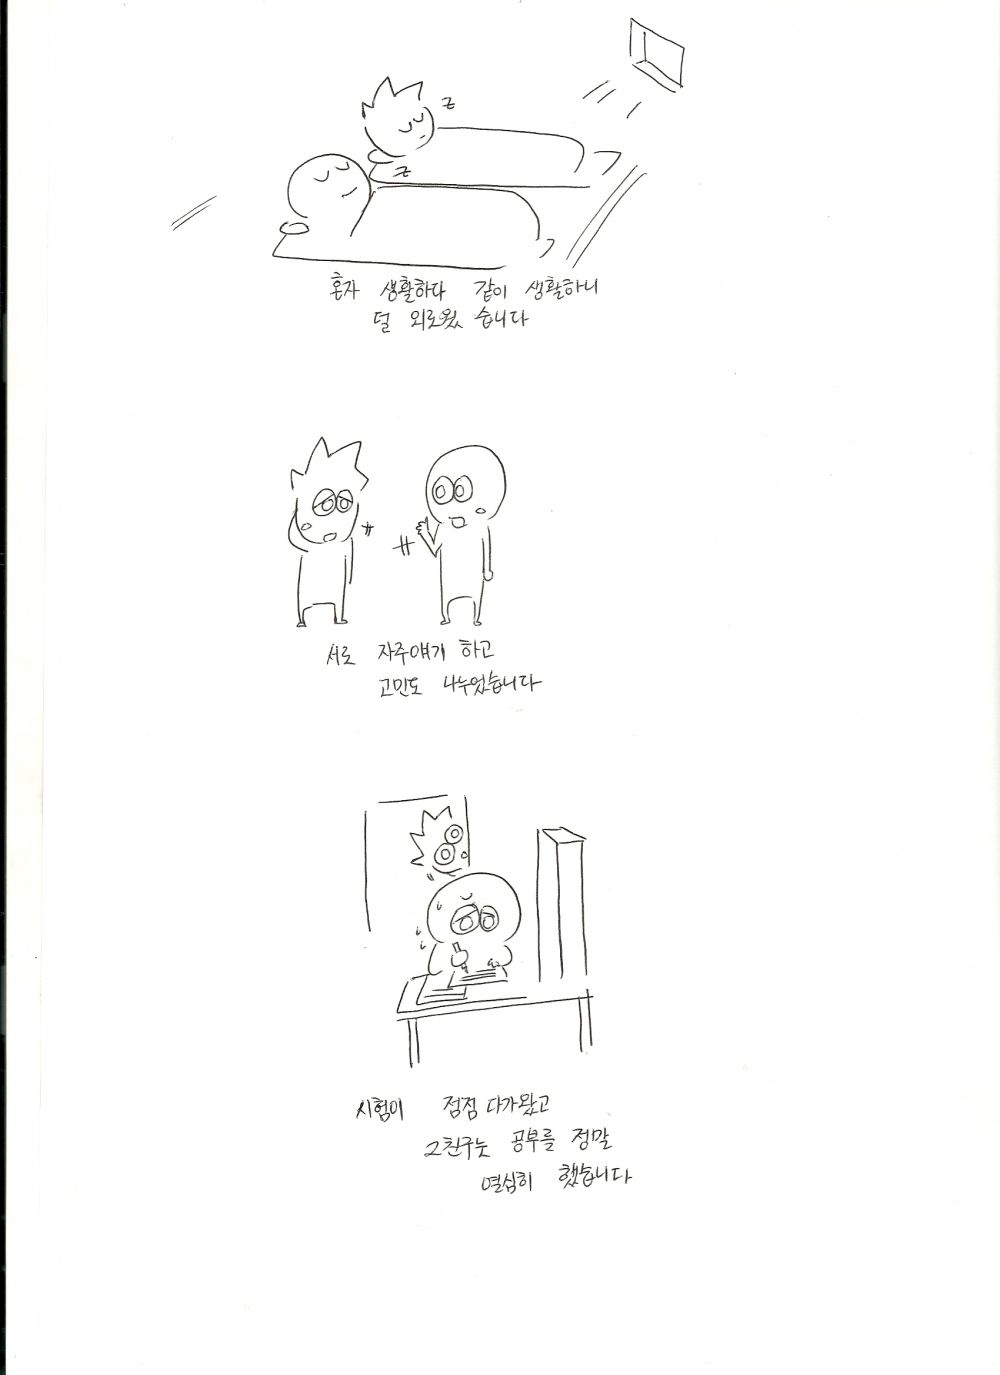 z
z
혼자 생활하다 같이 생활하니
덜 외로웠습니다
서로 자주얘기 하고
고민도 나누었습니다
시험이 점점 다가왔고
그친구는 공부를 정말
열심히 했습니다